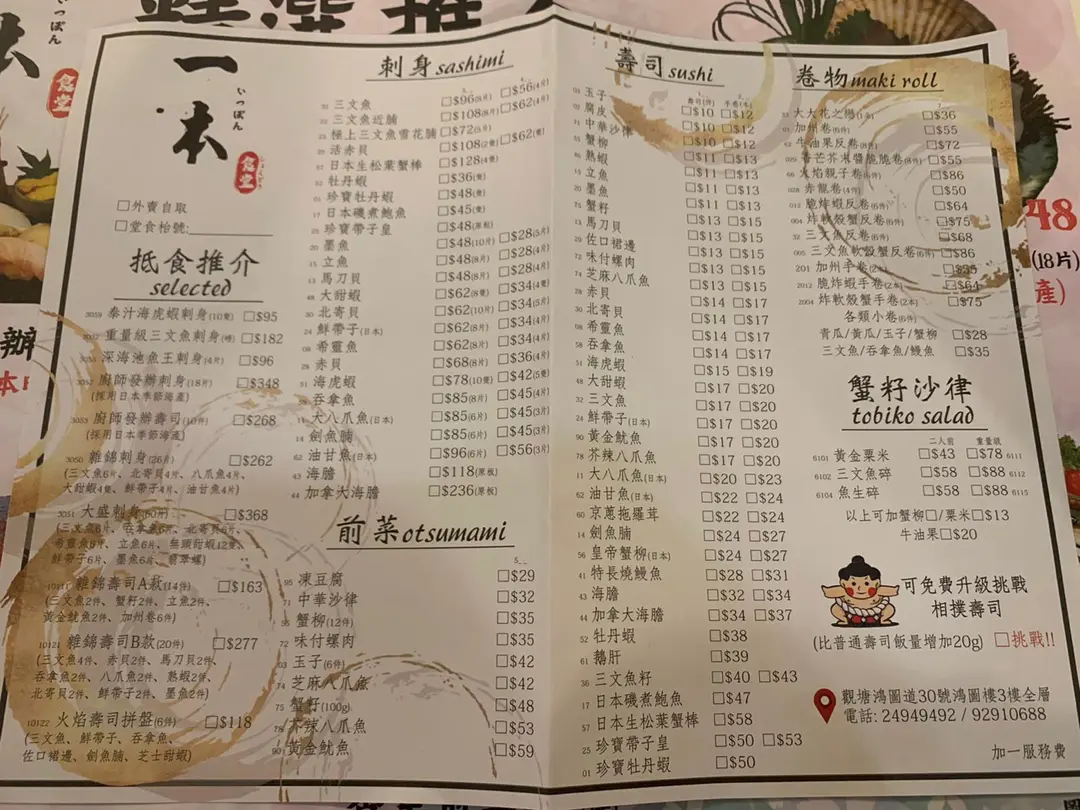 一本
いっぽん
食堂
□外賣自取
□堂食枱號:
抵食推介
selected
3059 泰汁海虎蝦刺身(10隻) □$95
重量級三文魚刺身(磅) □$182
深海池魚王刺身(4片) □$96
3052 廚師發辦刺身(18片) □$348
(採用日本季節海產)
3053 廚師發辦壽司(10件) □$268
(採用日本季節海產)
3050 雜錦刺身(26片) □$262
(三文魚6片、北寄貝4片、八爪魚4片、
大甜蝦4隻、鮮帶子4片、油甘魚4片)
3051 大盛刺身(60片) □$368
(三文魚6片、吞拿魚6片、北寄貝6片、
希靈魚6片、立魚6片、無頭甜蝦12隻、
鮮帶子6片、墨魚6片、翡翠螺)
10111 雜錦壽司A款(14件) □$163
(三文魚2件、蟹籽2件、立魚2件、
黃金魷魚2件、加州卷6件)
10121 雜錦壽司B款(20件) □$277
(三文魚4件、赤貝2件、馬刀貝2件、
吞拿魚2件、八爪魚2件、熟蝦2件、
北寄貝2件、鮮帶子2件、墨魚2件)
10122 火焰壽司拼盤(6件) □$118
(三文魚、鮮帶子、吞拿魚、
佐口裙邊、劍魚腩、芝士甜蝦)
刺身sashimi
三文魚 □$96(8片) □$56(4片)
三文魚近腩 □$108(8片) □$62(4片)
極上三文魚雪花腩 □$72(5片)
活赤貝 □$108(2隻) □$62(隻)
日本生松葉蟹棒 □$128(4隻)
牡丹蝦 □$36(隻)
珍寶牡丹蝦 □$48(隻)
日本磯煮鮑魚 □$45(隻)
珍寶帶子皇 □$48(原板)
墨魚 □$48(10片) □$28(5片)
立魚 □$48(8片) □$28(4片)
馬刀貝 □$48(8片) □$28(4片)
大甜蝦 □$62(8隻) □$34(4隻)
北寄貝 □$62(10片) □$34(5片)
鮮帶子(日本) □$62(8片) □$34(4片)
希靈魚 □$62(8片) □$34(4片)
赤貝 □$68(8片) □$36(4片)
海虎蝦 □$78(10隻) □$42(5隻)
吞拿魚 □$85(8片) □$45(4片)
大八爪魚(日本) □$85(6片) □$45(3片)
劍魚腩 □$85(6片) □$45(3片)
油甘魚(日本) □$96(6片) □$56(3片)
海膽 □$118(原板)
加拿大海膽 □$236(原板)
前菜otsumami
凍豆腐 □$29
中華沙律 □$32
蟹柳(12件) □$35
味付螺肉 □$35
玉子(6件) □$42
芝麻八爪魚 □$42
蟹籽(100g) □$48
芥辣八爪魚 □$53
黃金魷魚 □$59
壽司sushi
壽司(件) 手卷(本)
玉子 □$10 □$12
腐皮 □$10 □$12
中華沙律 □$11 □$13
蟹柳 □$11 □$13
熟蝦 □$11 □$13
立魚 □$11 □$13
墨魚 □$11 □$13
蟹籽 □$13 □$15
馬刀貝 □$13 □$15
佐口裙邊 □$13 □$15
味付螺肉 □$13 □$15
芝麻八爪魚 □$13 □$15
赤貝 □$14 □$17
北寄貝 □$14 □$17
希靈魚 □$14 □$17
吞拿魚 □$14 □$17
海虎蝦 □$15 □$19
大甜蝦 □$17 □$20
三文魚 □$17 □$20
鮮帶子(日本) □$17 □$20
黃金魷魚 □$17 □$20
芥辣八爪魚 □$17 □$20
大八爪魚(日本) □$20 □$23
油甘魚(日本) □$22 □$24
京蔥拖羅茸 □$22 □$24
劍魚腩 □$24 □$27
皇帝蟹柳(日本) □$24 □$27
特長燒鰻魚 □$28 □$31
海膽 □$32 □$34
加拿大海膽 □$34 □$37
牡丹蝦 □$38
鵝肝 □$39
三文魚籽 □$40 □$43
日本磯煮鮑魚 □$47
日本生松葉蟹棒 □$58
珍寶帶子皇 □$50 □$53
珍寶牡丹蝦 □$50
卷物maki roll
大大花之戀(1件) □$36
加州卷(6件) □$55
牛油果反卷(8件) □$72
香芒芥末醬脆脆卷(8件) □$55
火焰親子卷(6件) □$86
赤龍卷(4件) □$50
脆炸蝦反卷(6件) □$64
炸軟殼蟹反卷(6件) □$75
三文魚反卷(6件) □$68
三文魚軟殼蟹反卷(6件) □$86
201 加州手卷(2本) □$35
2012 脆炸蝦手卷(2本) □$64
2004 炸軟殼蟹手卷(2本) □$75
各類小卷(6件)
青瓜/黃瓜/玉子/蟹柳 □$28
三文魚/吞拿魚/鰻魚 □$35
蟹籽沙律
tobiko salad
二人前 重量級
6101 黃金粟米 □$43 □$78 6111
6102 三文魚碎 □$58 □$88 6112
6104 魚生碎 □$58 □$88 6115
以上可加蟹柳□/粟米□$13
牛油果□$20
可免費升級挑戰
相撲壽司
(比普通壽司飯量增加20g) □挑戰!!
觀塘鴻圖道30號鴻圖樓3樓全層
電話: 24949492 / 92910688
加一服務費
48
(18片)
產)